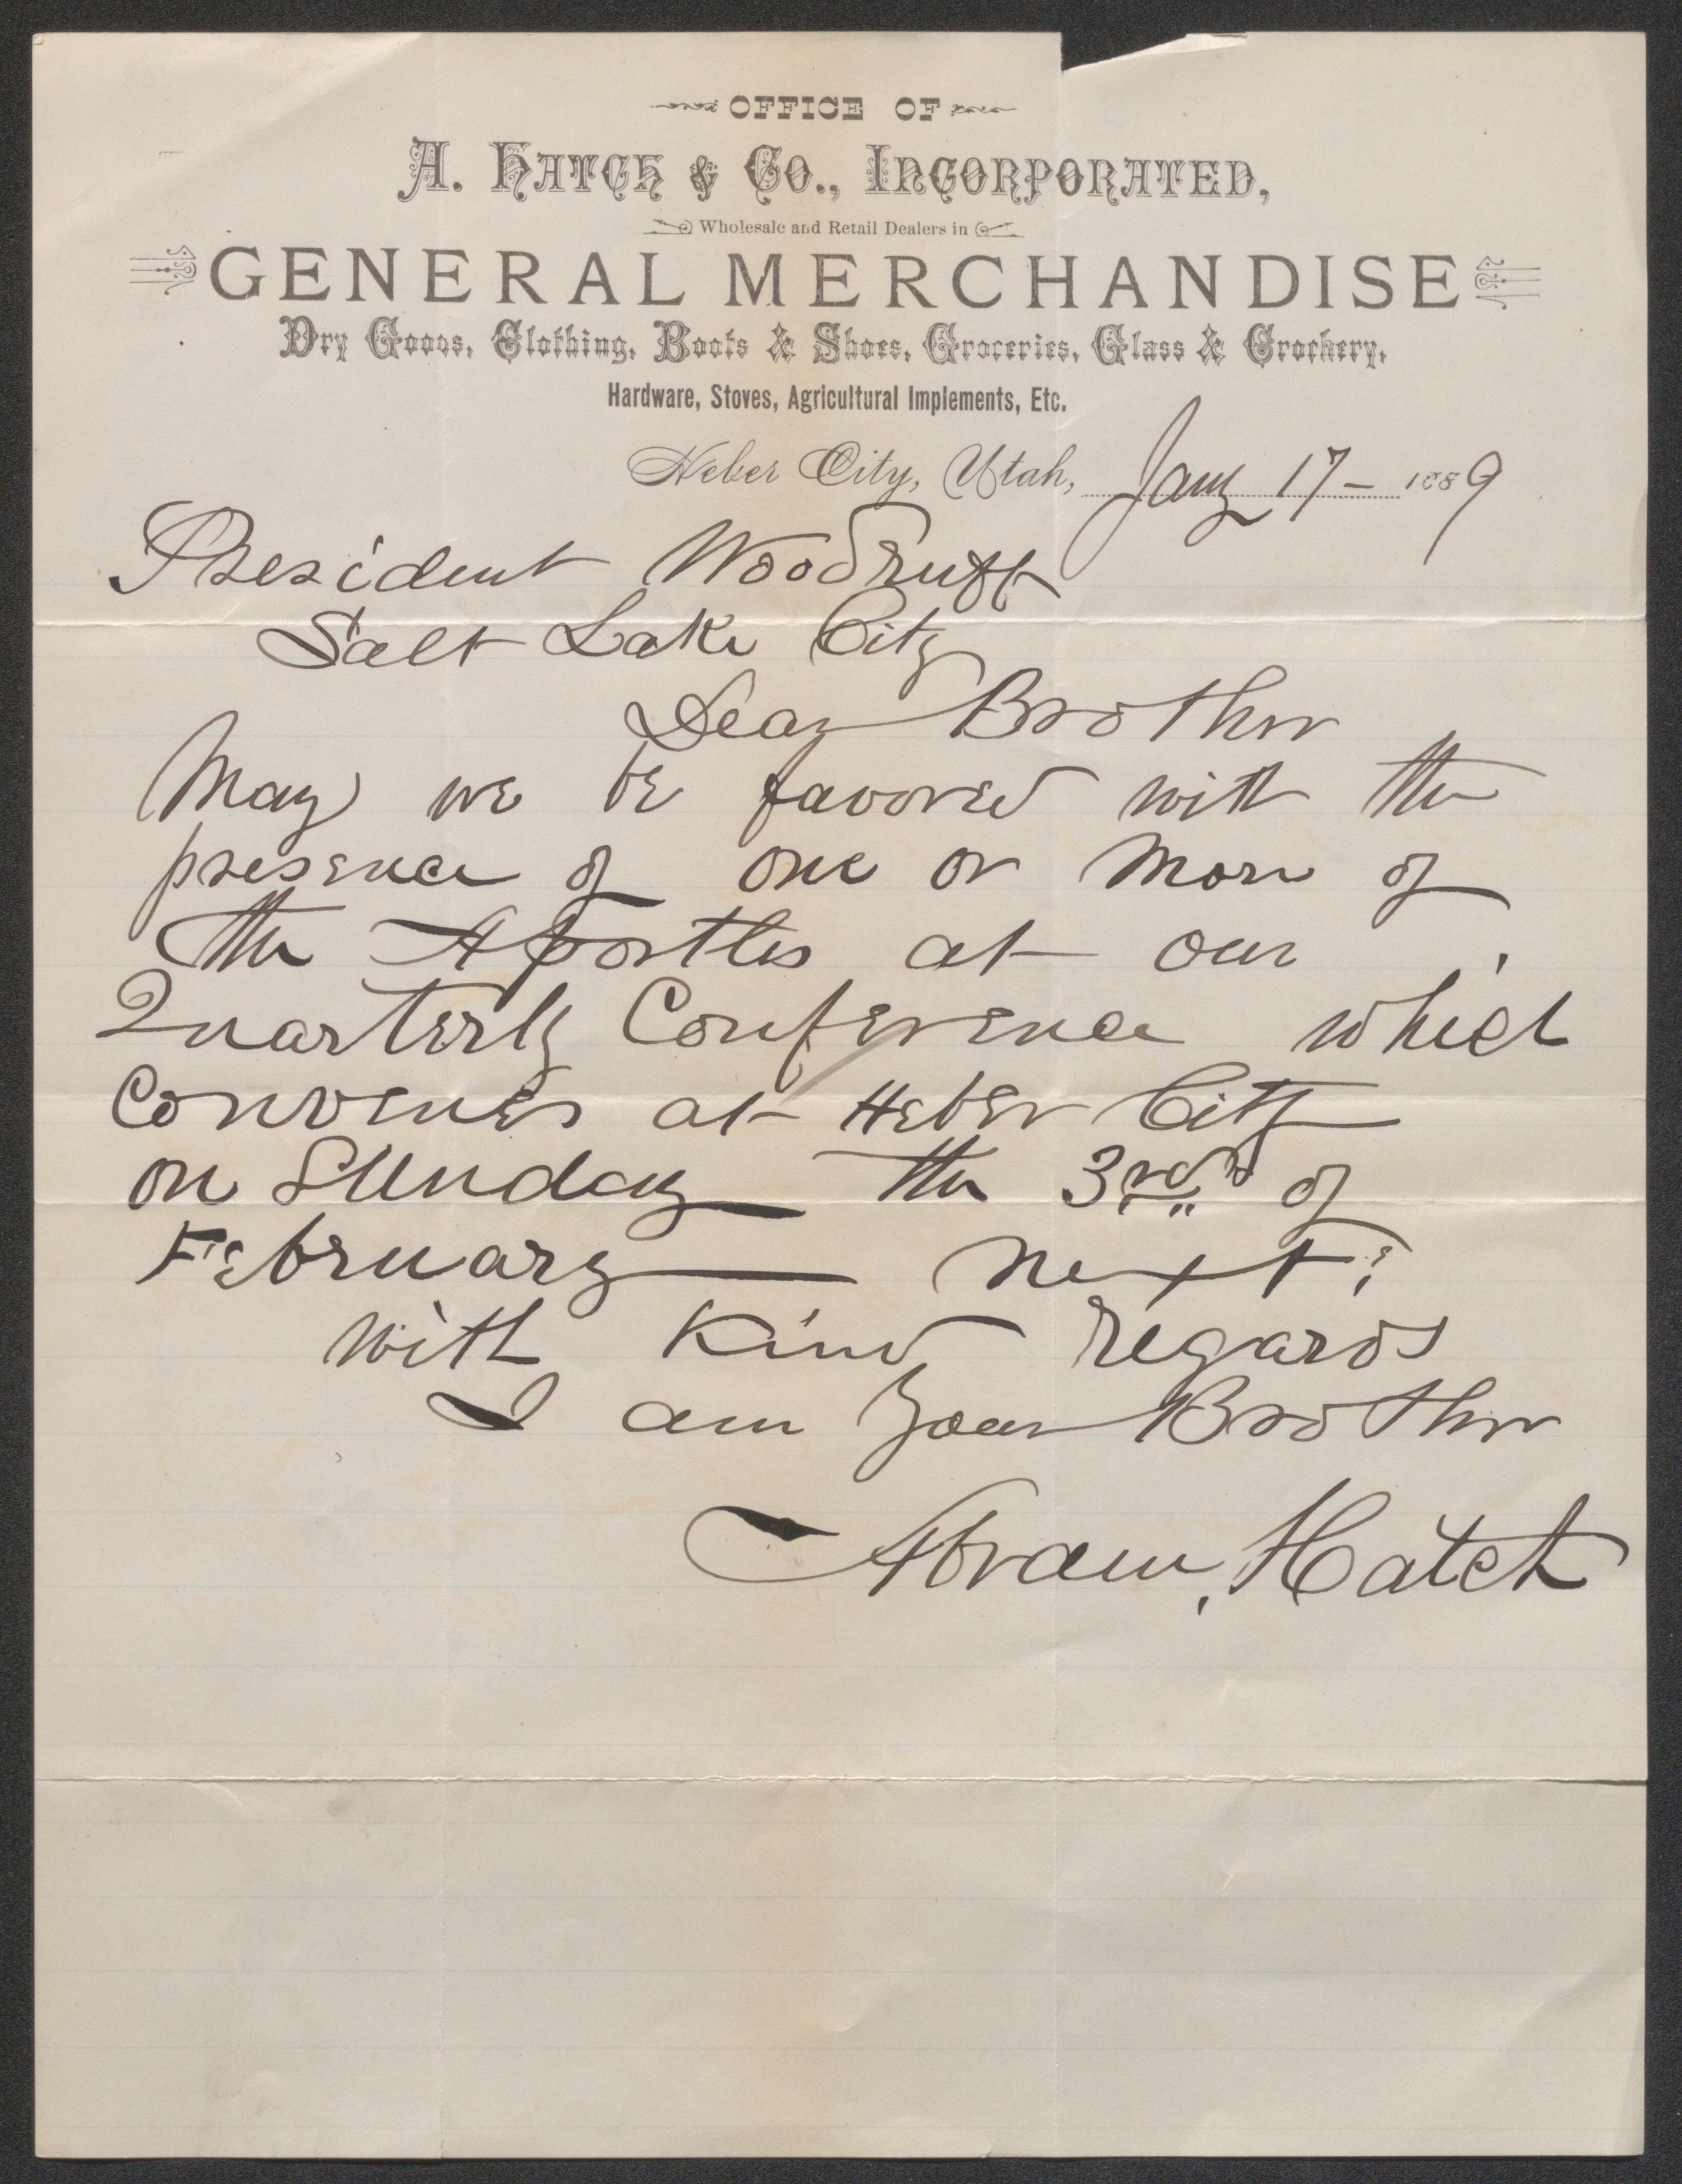 OFFICE OF
A. HATCH & CO., INCORPORATED,
Wholesale and Retail Dealers in
GENERAL MERCHANDISE
Dry Goods, Clothing, Boots & Shoes, Groceries, Glass & Crockery,
Hardware, Stoves, Agricultural Implements, Etc.
Heber City, Utah, Jany 17- 1889
President Woodruff
Salt Lake City
Dear Brother
May we be favored with the
presence of one or more of
the Apostles at our
Quarterly Conference which
Convenes at Heber City
on Sunday the 3rd of
February next;
with Kind regards
I am your Brother
Abram Hatch